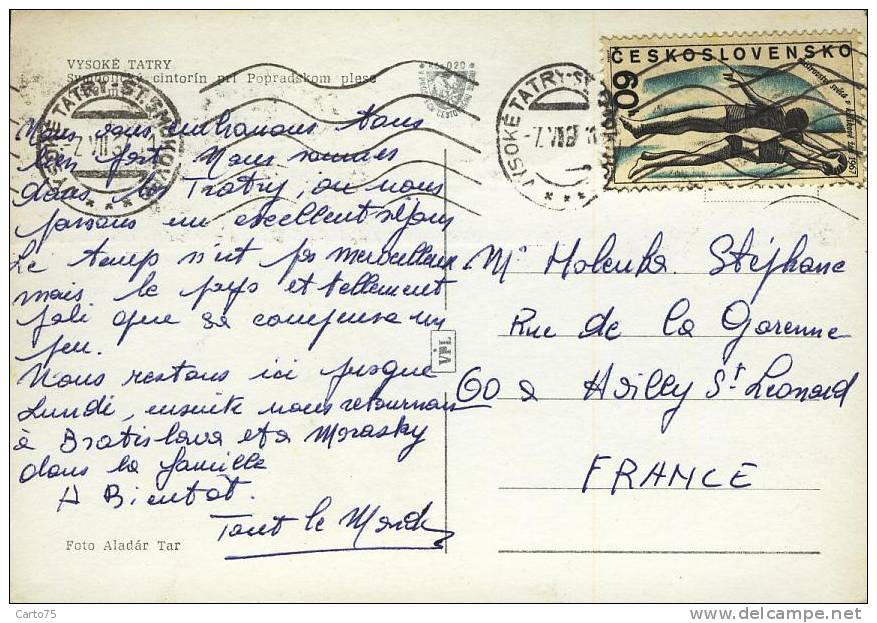 VYSOKÉ TATRY
Symbolický cintorín pri Popradskom plese
ČESKOSLOVENSKO
60
1967
VYSOKÉ TATRY-ST. SMOKOVEC
-7.VII.
Nous vous embrassons tous
bien fort. Nous sommes
dans les Tratry, où nous
passons un excellent séjour
Le temps n'est pas merveilleux
mais le pays est tellement
joli que ça compense un
peu.
Nous restons ici jusque
Lundi, ensuite nous retournons
à Bratislava et à Morasky
dans la famille
A Bientot.
Tout le Monde
Mr Holenka Stéphane
Rue de la Garenne
60 à Avilly St Léonard
FRANCE
VIL
Foto Aladár Tar
Carto75